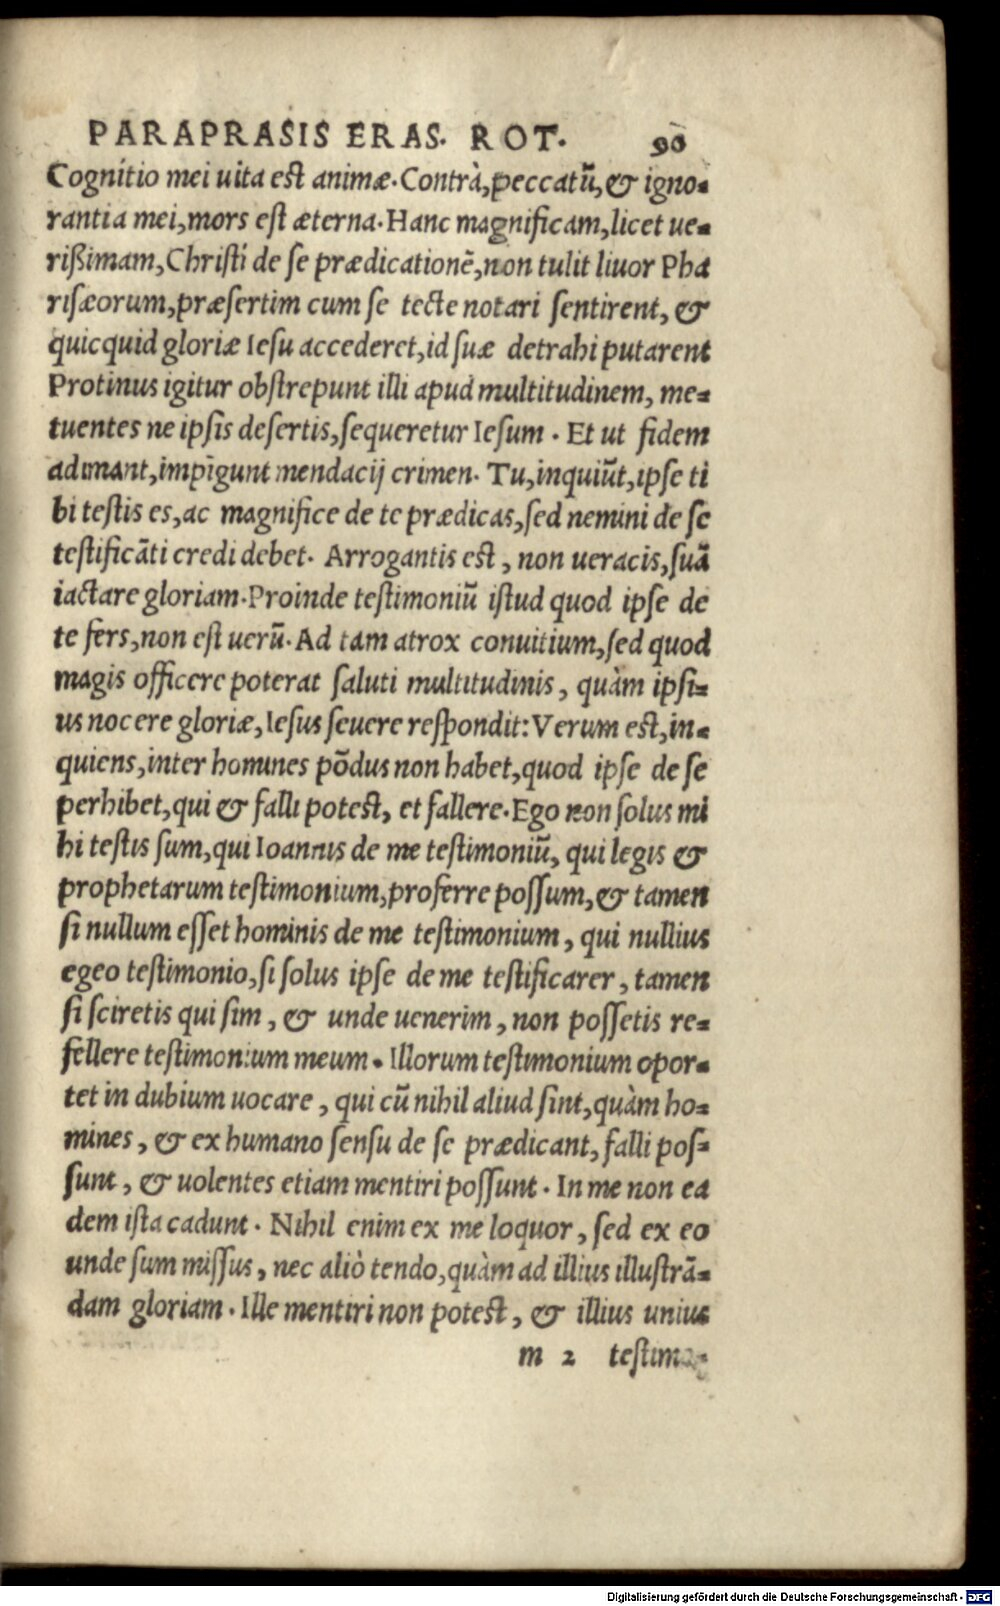 PARAPRASIS ERAS. ROT. 90
Cognitio mei uita est animæ. Contrà, peccatũ, & igno-
rantia mei, mors est æterna. Hanc magnificam, licet ue-
rißimam, Christi de se prædicationẽ, non tulit liuor Pha
risæorum, præsertim cum se tecte notari sentirent, &
quicquid gloriæ Iesu accederet, id suæ detrahi putarent
Protinus igitur obstrepunt illi apud multitudinem, me-
tuentes ne ipsis desertis, sequeretur Iesum. Et ut fidem
adimant, impĩgunt mendacij crimen. Tu, inquiũt, ipse ti
bi testis es, ac magnifice de te prædicas, sed nemini de se
testificãti credi debet. Arrogantis est, non ueracis, suã
iactare gloriam. Proinde testimoniũ istud quod ipse de
te fers, non est uerũ. Ad tam atrox conuitium, sed quod
magis officere poterat saluti multitudinis, quàm ipsi-
us nocere gloriæ, Iesus seuere respondit: Verum est, in-
quiens, inter homines põdus non habet, quod ipse de se
perhibet, qui & falli potest, et fallere. Ego non solus mi
hi testis sum, qui Ioannis de me testimoniũ, qui legis &
prophetarum testimonium, proferre possum, & tamen
si nullum esset hominis de me testimonium, qui nullius
egeo testimonio, si solus ipse de me testificarer, tamen
si sciretis qui sim, & unde uenerim, non possetis re-
fellere testimonium meum. Illorum testimonium opor-
tet in dubium uocare, qui cũ nihil aliud sint, quàm ho-
mines, & ex humano sensu de se prædicant, falli pos-
sunt, & uolentes etiam mentiri possunt. In me non ea
dem ista cadunt. Nihil enim ex me loquor, sed ex eo
unde sum missus, nec aliò tendo, quàm ad illius illustrã-
dam gloriam. Ille mentiri non potest, & illius unius
m 2 testimo-
Digitalisierung gefördert durch die Deutsche Forschungsgemeinschaft - DFG